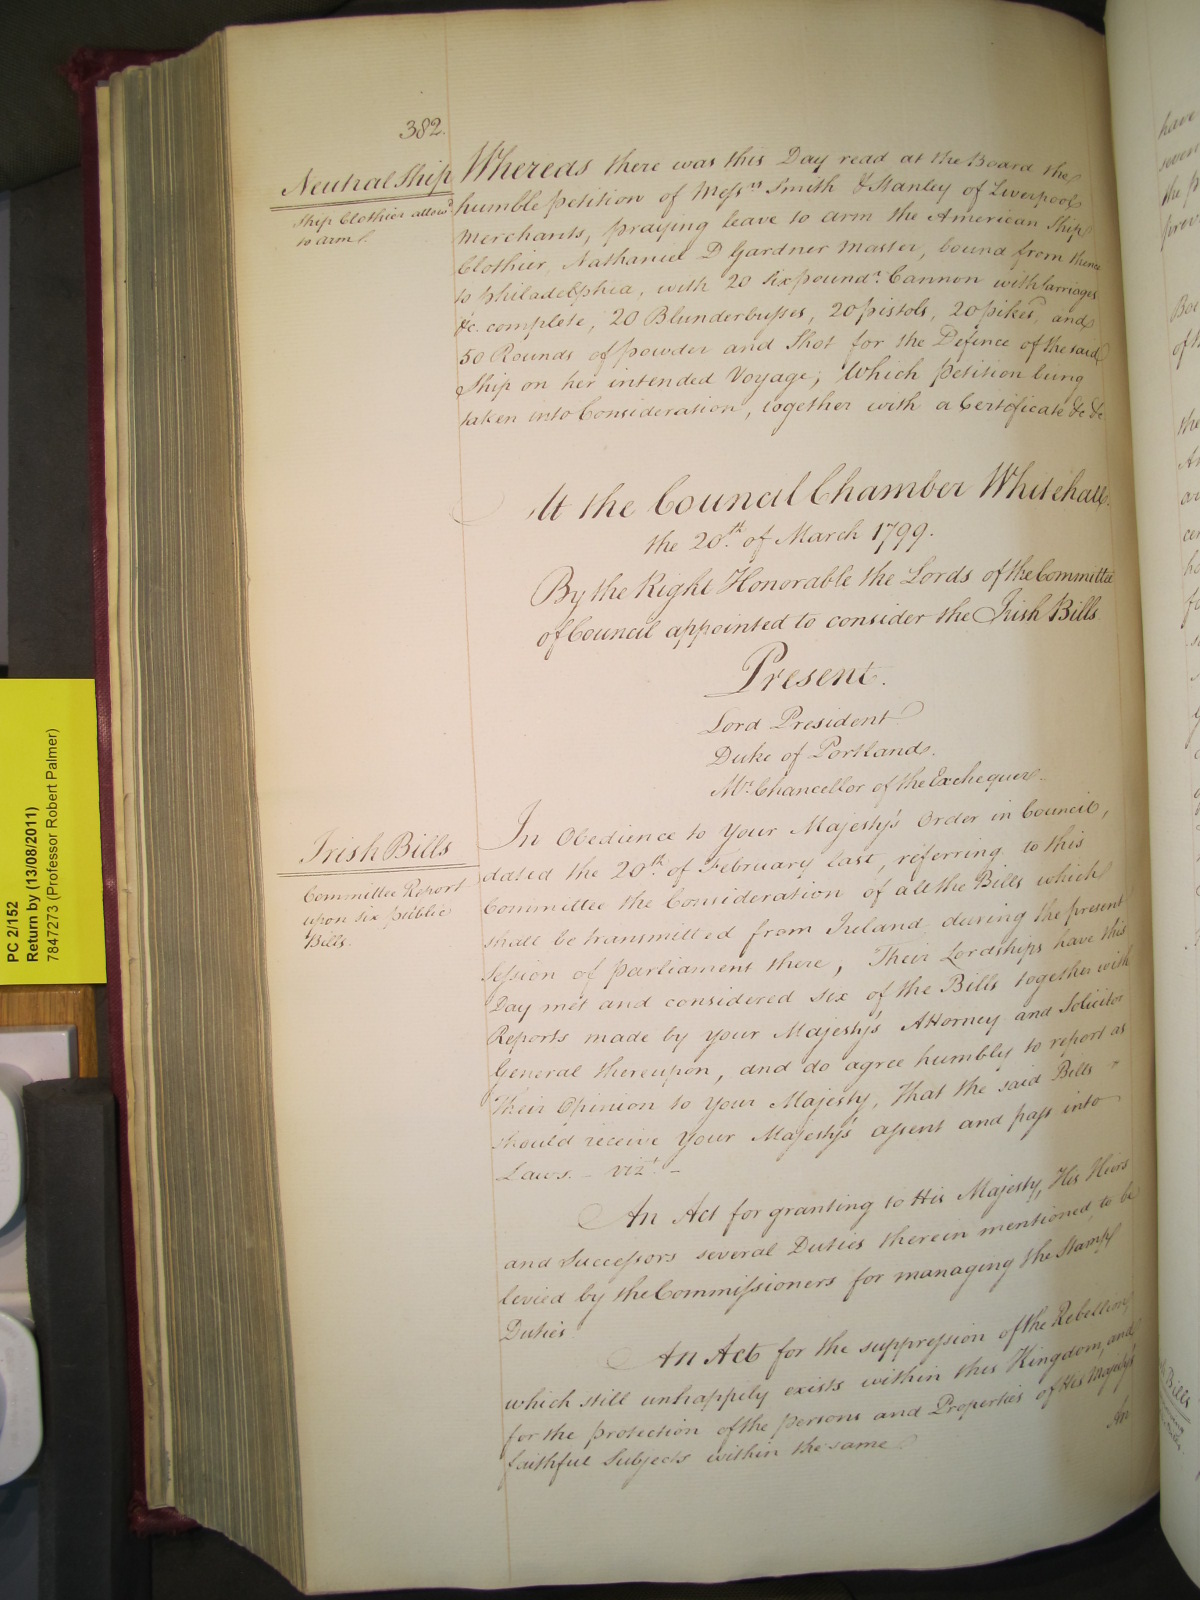 382.
Neutral Ship
Ship Clothier allow'd
to arm.
Whereas there was this Day read at the Board the
humble petition of Mess.rs Smith & Stanley of Liverpool
Merchants, praying leave to arm the American Ship
Clothier, Nathaniel D Gardner Master, bound from thence
to Philadelphia, with 20 Six pound.r Cannon with Carriages
&c. complete, 20 Blunderbusses, 20 pistols, 20 pikes, and
50 Rounds of powder and Shot for the Defence of the said
Ship on her intended Voyage; Which petition being
taken into Consideration, together with a Certificate &c &c
At the Council Chamber Whitehall.
the 20.th of March 1799.
By the Right Honorable the Lords of the Committee
of Council appointed to consider the Irish Bills
Present.
Lord President
Duke of Portland.
Mr. Chancellor of the Exchequer.
Irish Bills
Committee Report
upon six public
Bills.
In Obedience to Your Majesty's Order in Council,
dated the 20.th of February last, referring to this
Committee the Consideration of all the Bills which
shall be transmitted from Ireland during the present
Session of parliament there, Their Lordships have this
Day met and considered six of the Bills together with
Reports made by your Majesty's Attorney and Solicitor
General thereupon, and do agree humbly to report as
Their Opinion to Your Majesty, That the said Bills
should receive Your Majesty's assent and pass into
Laws. – viz.t –
An Act for granting to His Majesty, His Heirs
and Successors several Duties therein mentioned, to be
levied by the Commissioners for managing the Stamp
Duties
An Act for the suppression of the Rebellion,
which still unhappily exists within this Kingdom, and
for the protection of the persons and Properties of His Majesty's
faithful Subjects within the same
An
PC 2/152
Return by (13/08/2011)
7847273 (Professor Robert Palmer)
have
the